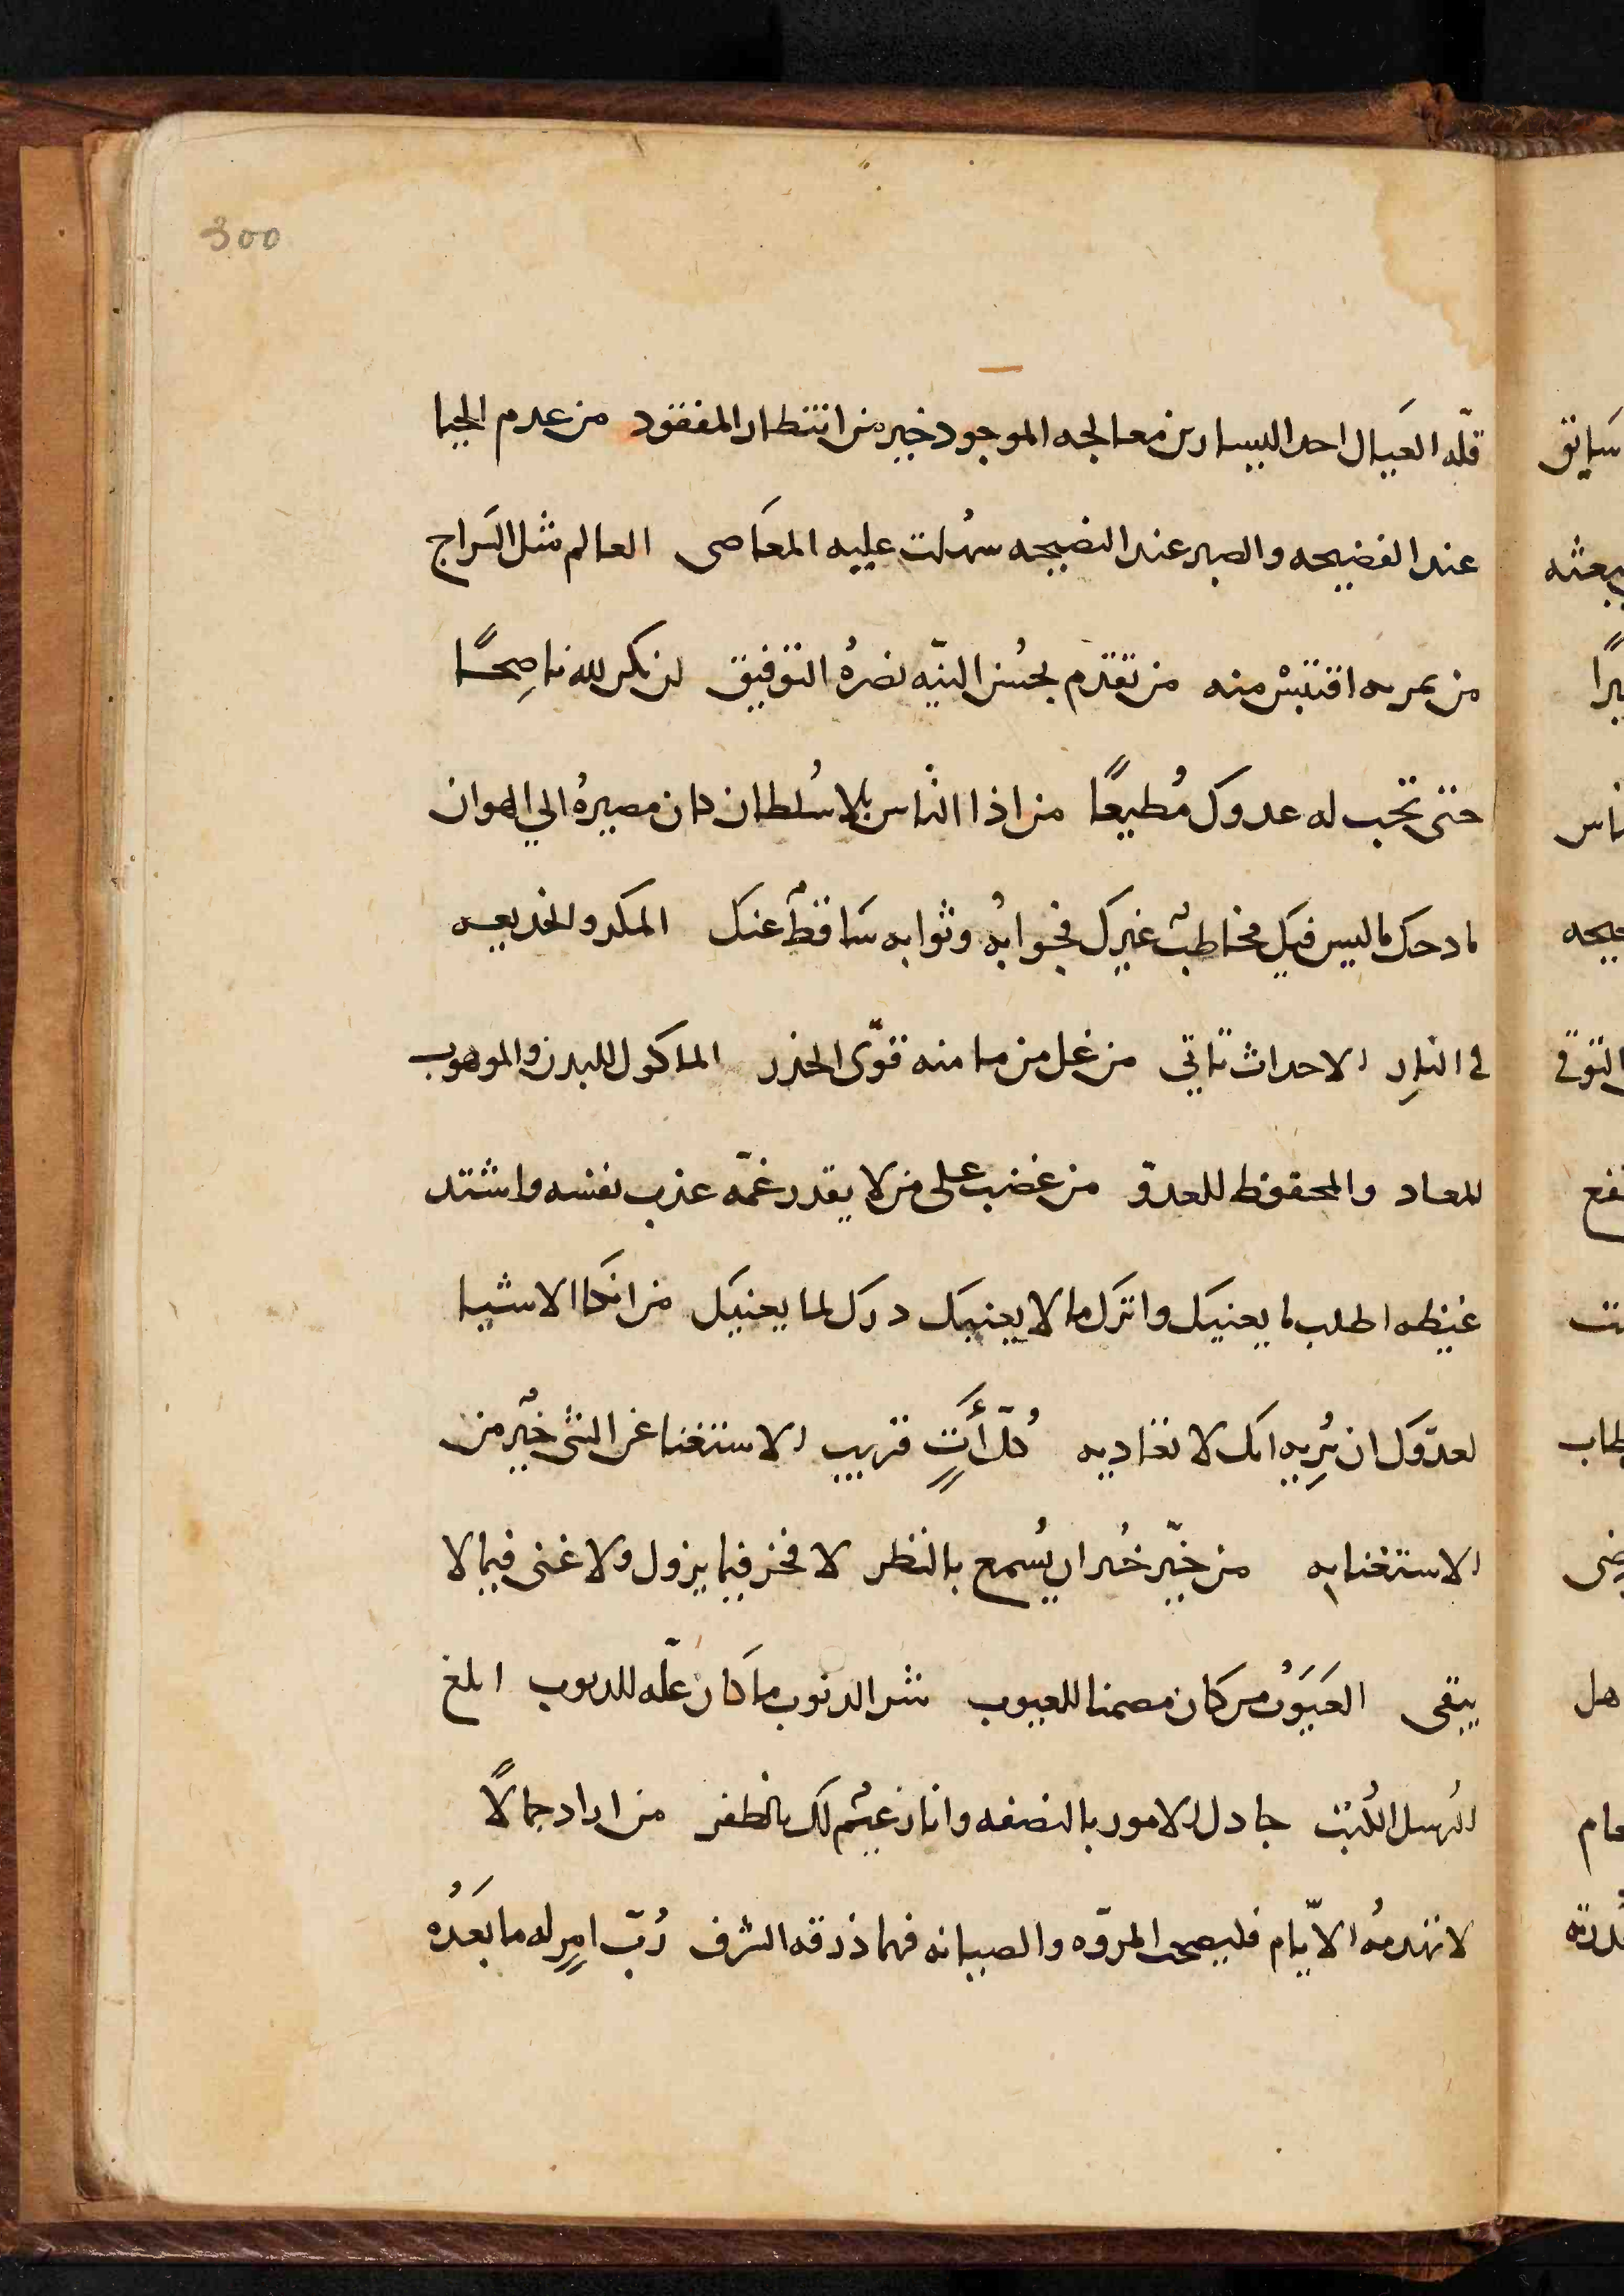 300
قلّه العيَال احد اليسارين معالجه الموجود خير من انتظار المفقود من عدم الحيا
عند الفضيحه والصبر عند النصيحه سهُلت عليه المعَاصى العالم مثل السَراج
من يمر به اقتبسْ منه من تقدم بحُسن النيّه نصرهُ التوفيق لن تكن لله ناصِحًا
حتى تحب له عدوك مُطيعًا من اذا الناس بلا سُلطان كان مصيرهُ الي الهوان
مادحك بما ليس فيك مخاطبٌ غيرك فجوابهُ وثوابه سَاقطٌ عنك المكر والخديعه
في النارِ الاحداث تاتي من غل من مامنه قوّى الحذر الماكول للبدن والموهوب
للمعاد والمحفوظ للعدوّ من غضب على من لا يقدر غمّه عذب نفسه واشتد
غيظه اطلب ما يعنيك واترك ما لا يعنيك درك لما يعنيك من انكا الاشيا
لعدوّك ان تُريه انك لا تعَاديه كلّ أتٍ قريب الاستغنا عن الشى خيرٌ من
الاستغنا به من خبّر خُبران يُسمع بالنظر لا فخر فيما يزول ولا غنى فيما لا
يبقى العيَوبُ من كان مصمنا للعيوب شر الدنوب ما كَان علّه للدنوب ابلغ
الرُسل الكُتب جادل الامور بالنصفه وانا زعيٌم لك بالظفر من اراد جمالًا
لا تهدمهُ الايّام فليصحب المروّه والصيانه فهما ذروه الشرف رُبّ امرٍ له ما بعَدُه
سَابق
يبعثه
يرًا
ناس
التوقي
هل